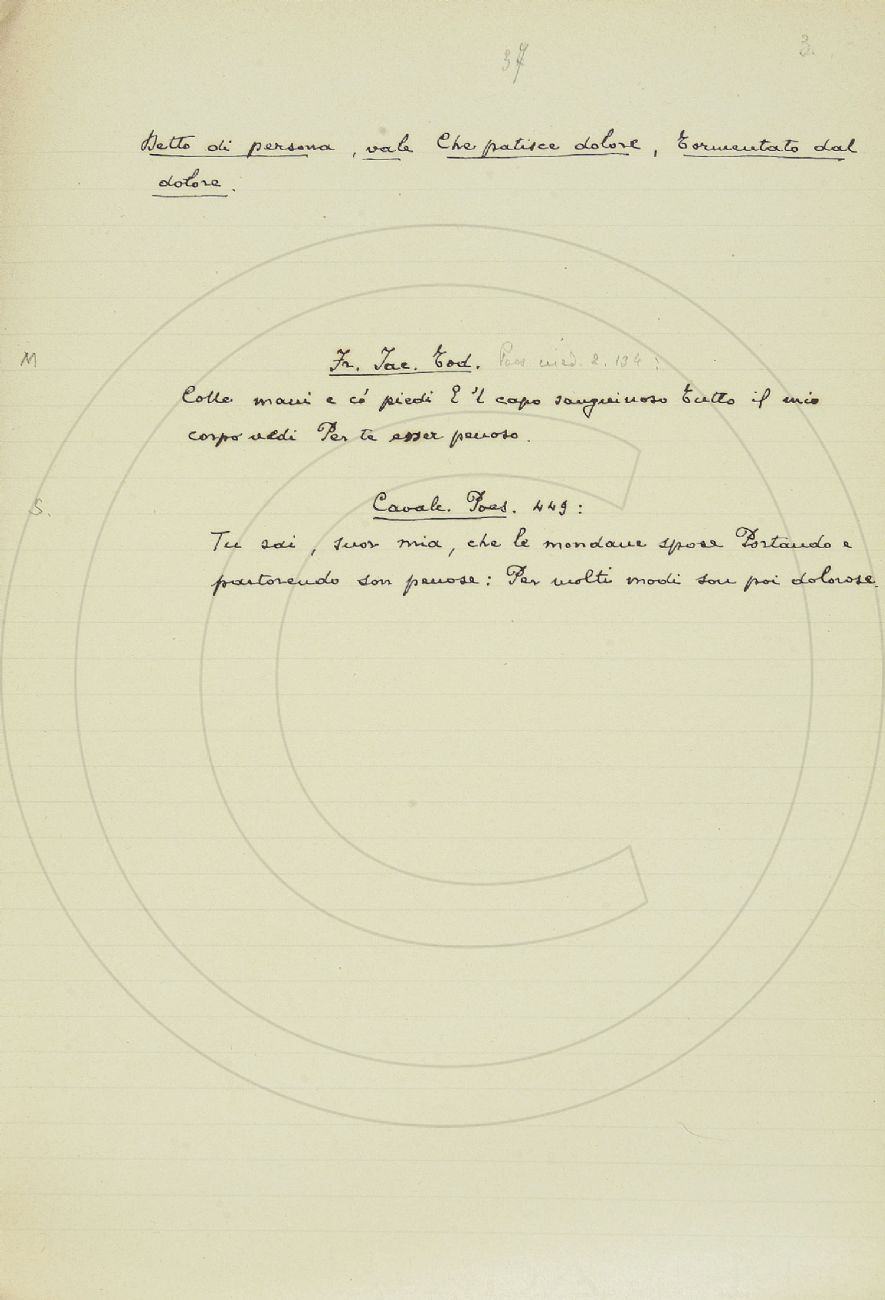 37
3.
Detto di persona, vale Che patisce dolore, Tormentato dal
dolore.
M
Fr. Iac. Tod. Poes ined. 2. 134:
Colle mani e co' piedi E 'l capo sanguinoso Tutto il mio
corpo vedi Per te esser penoso.
S.
Cavalc. Poes. 449:
Tu sai, suor mia, che le mondane spose Portando e
partorendo son penose: Per molti modi son poi dolorose.